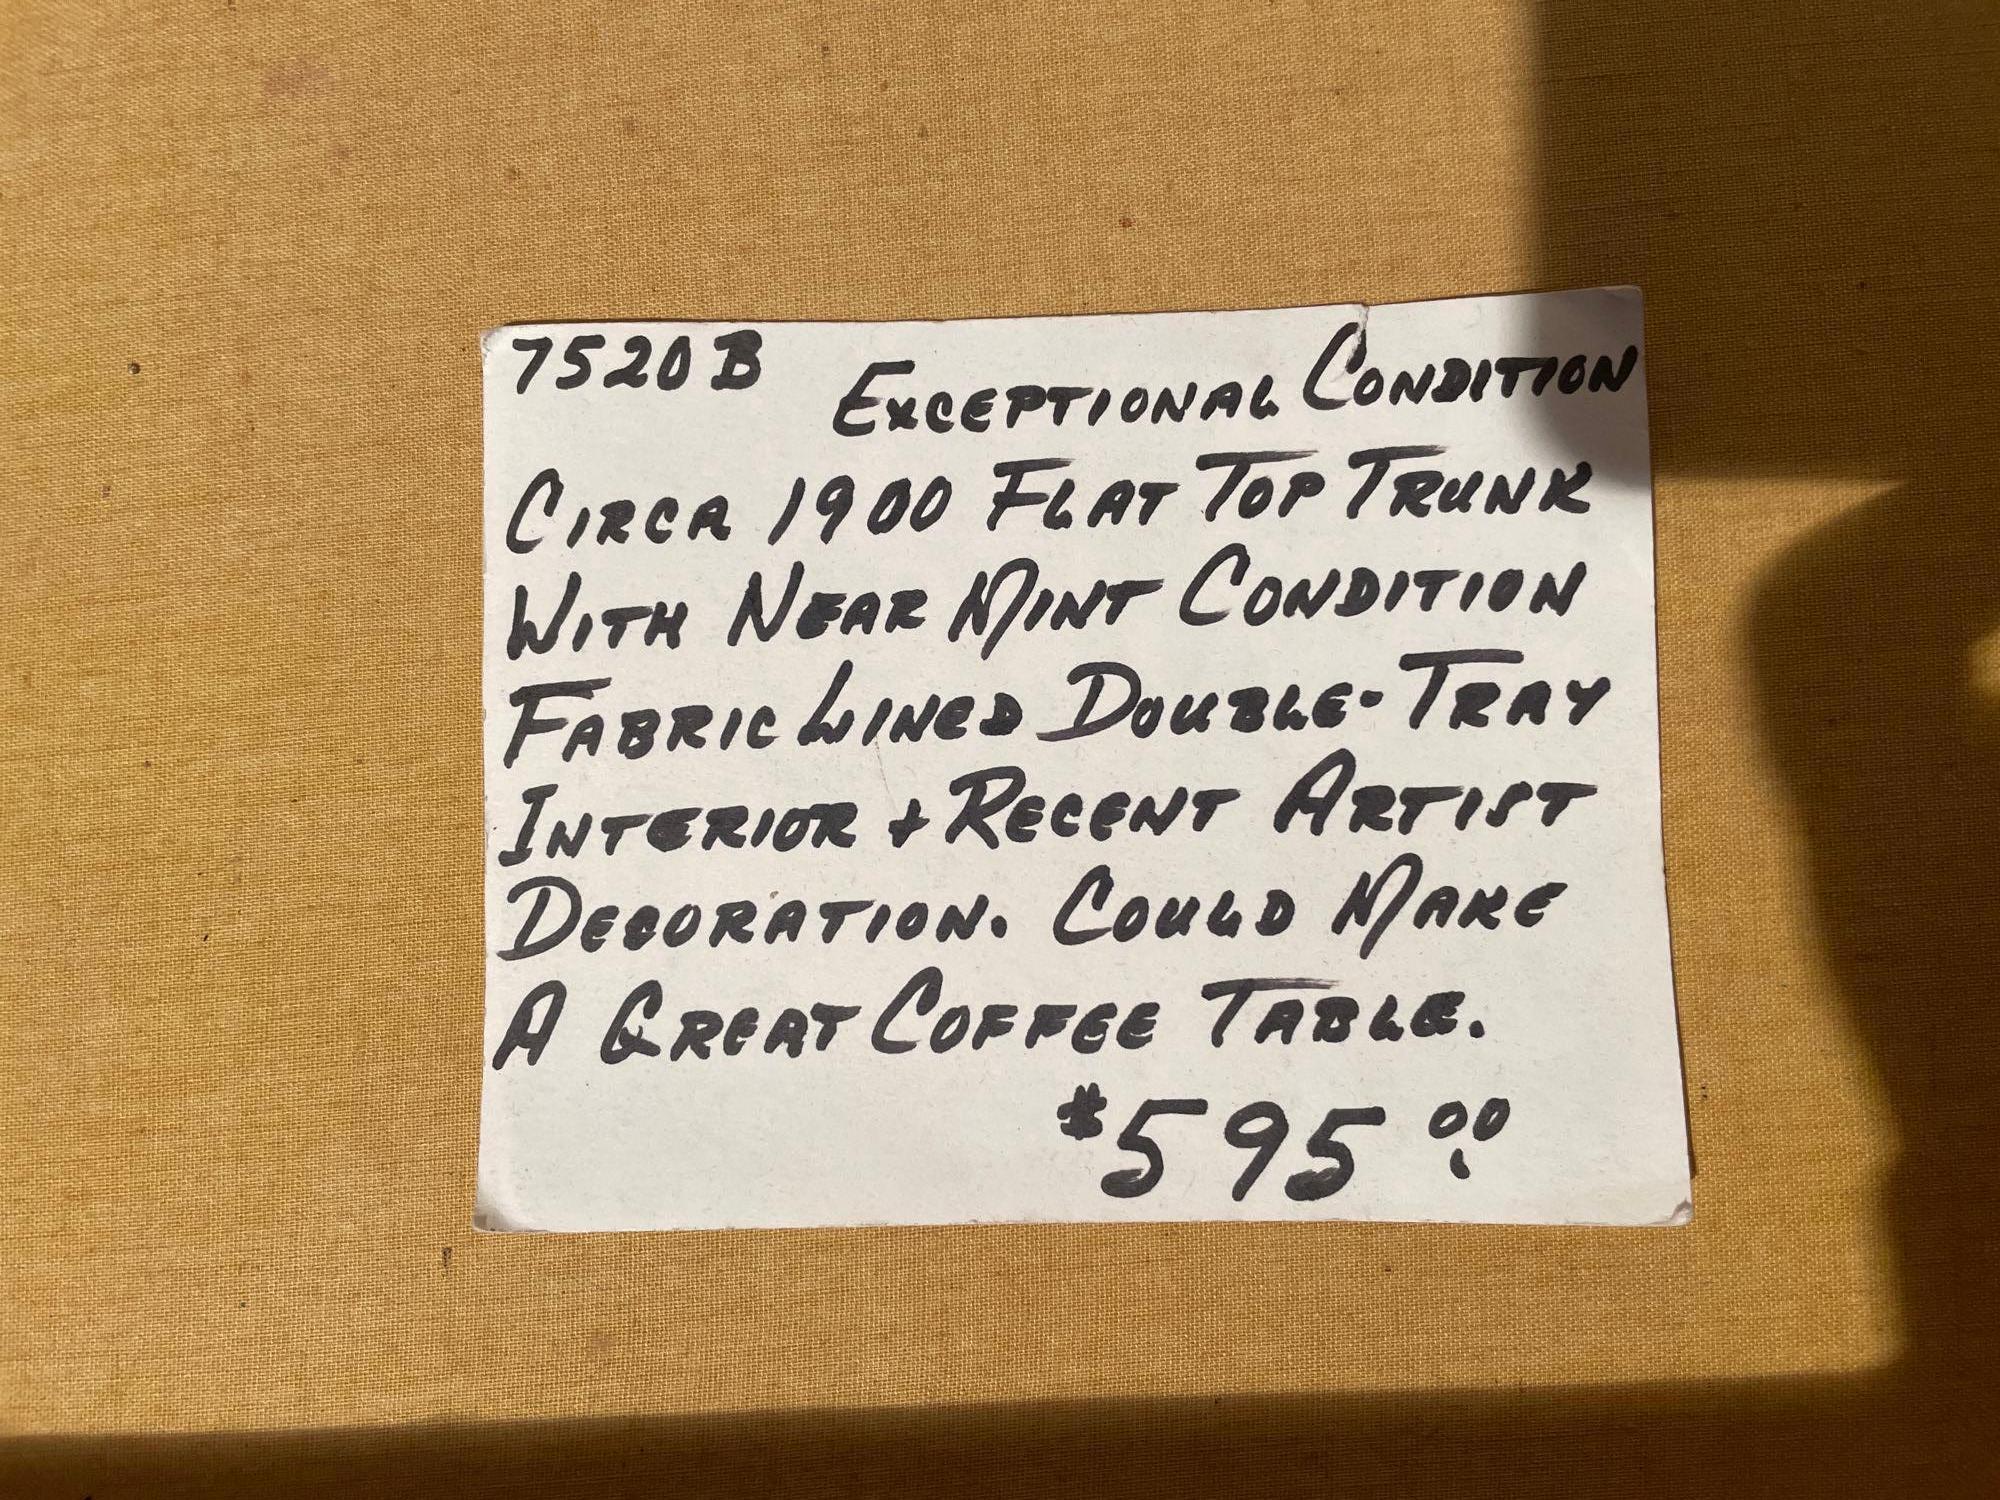 7520B
Exceptional Condition
Circa 1900 Flat Top Trunk
With Near Mint Condition
Fabric Lined Double-Tray
Interior + Recent Artist
Decoration. Could Make
A Great Coffee Table.
$595.00